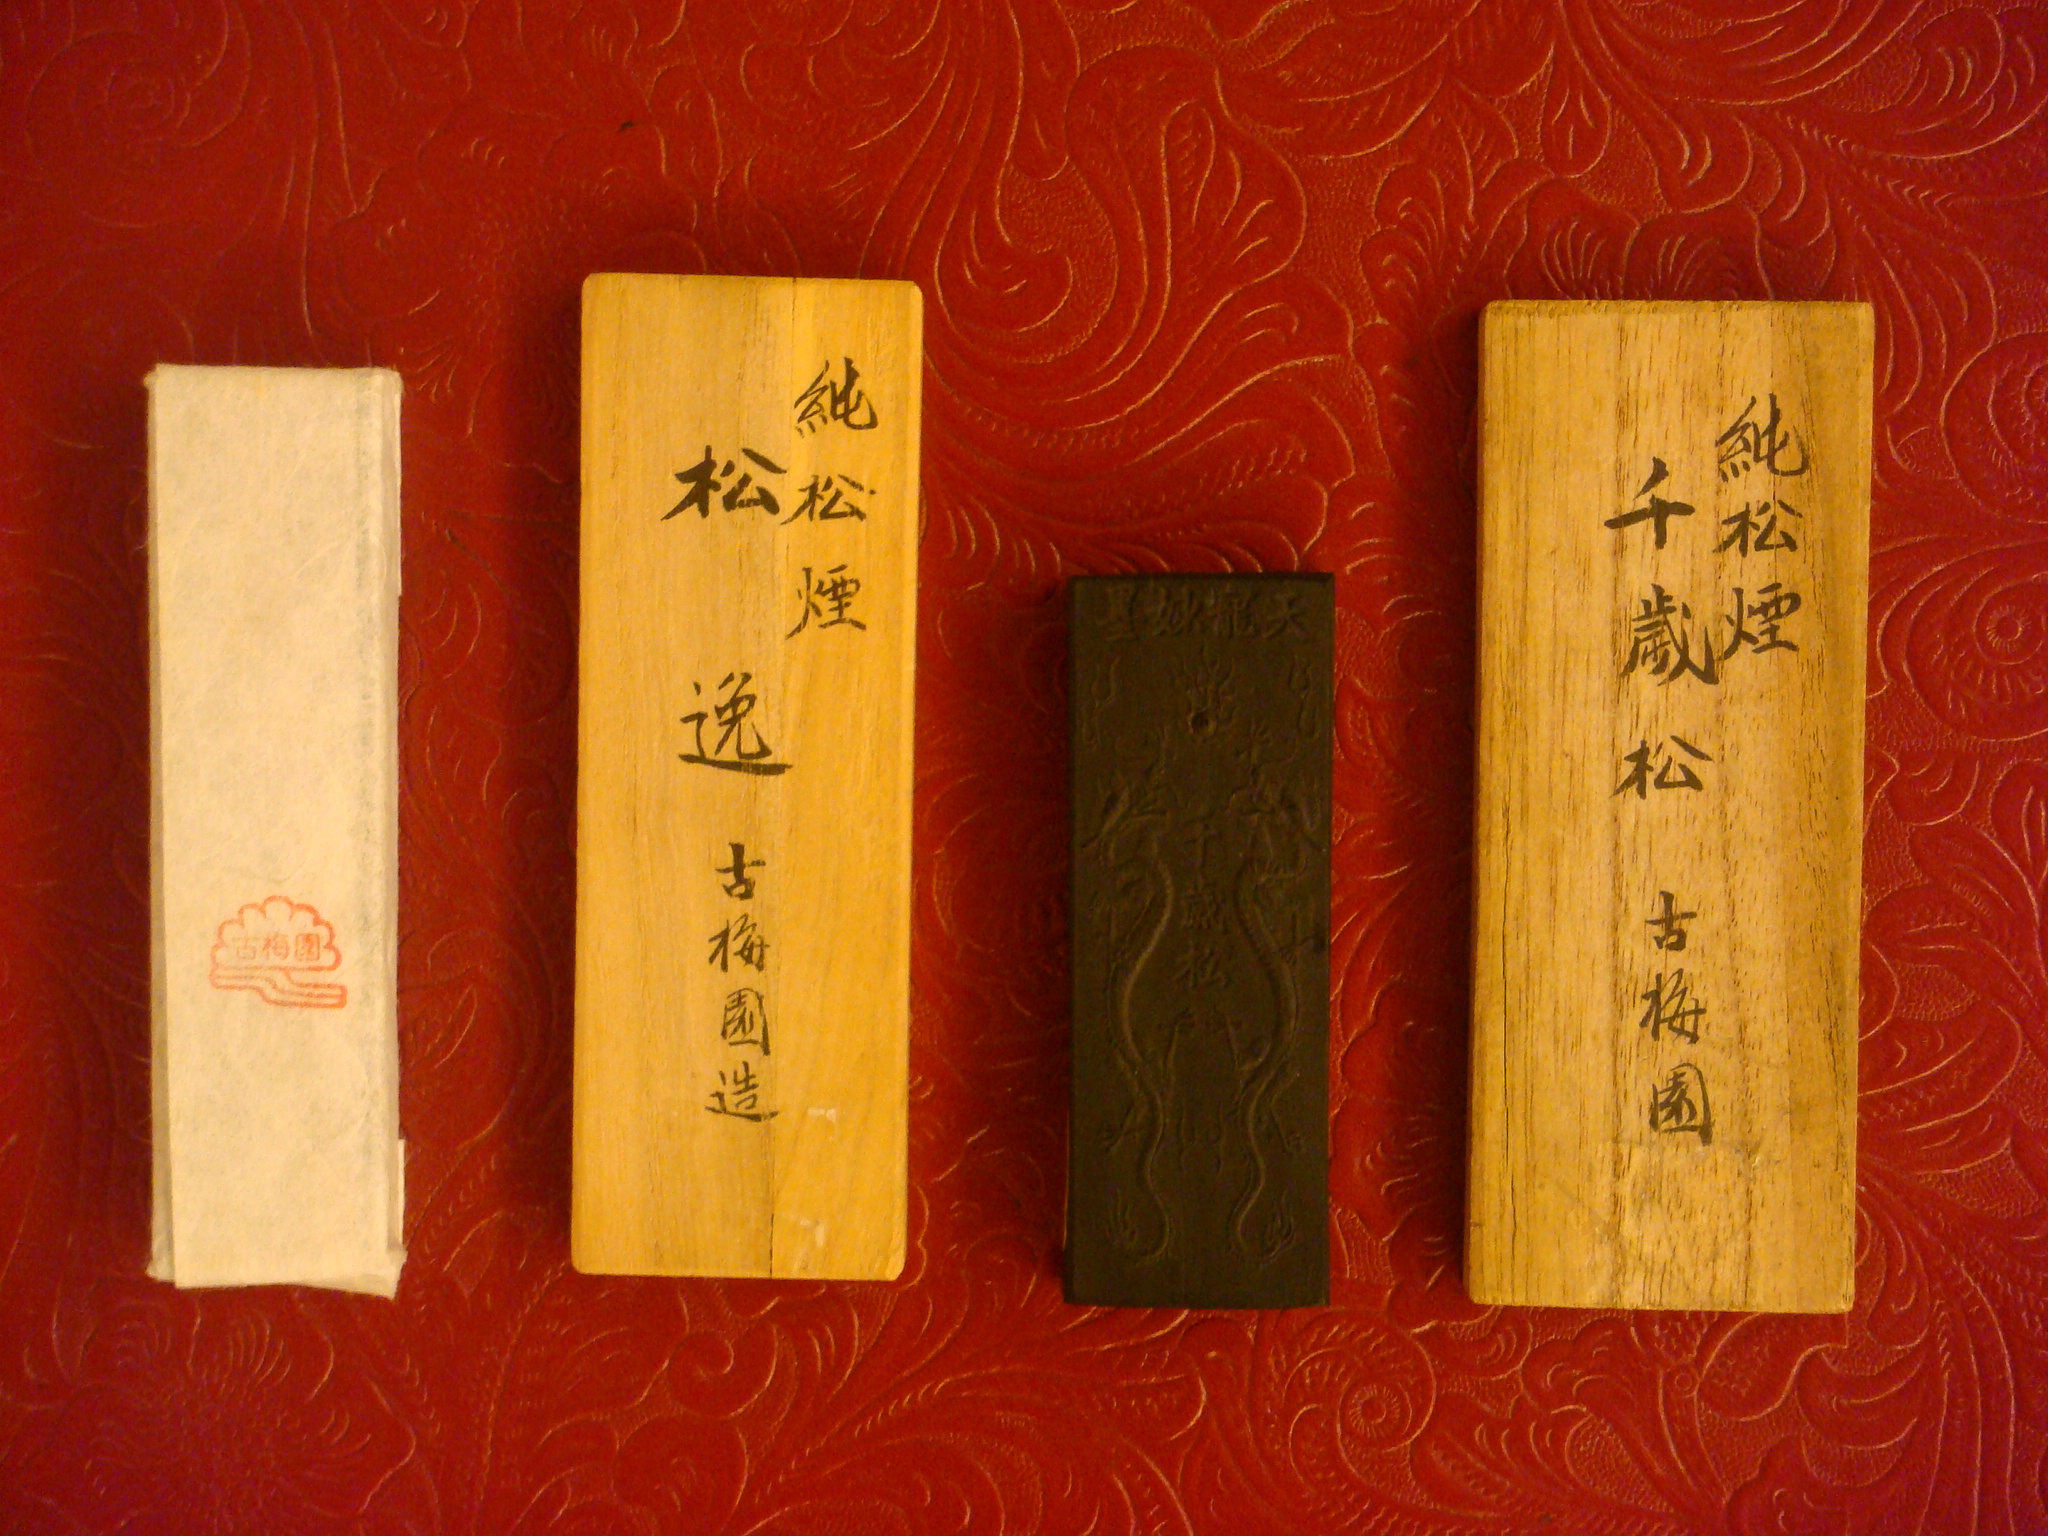 古梅園
純松煙
松逸
古梅園造
天龍妙墨
千歳松
純松煙
千歳松
古梅園